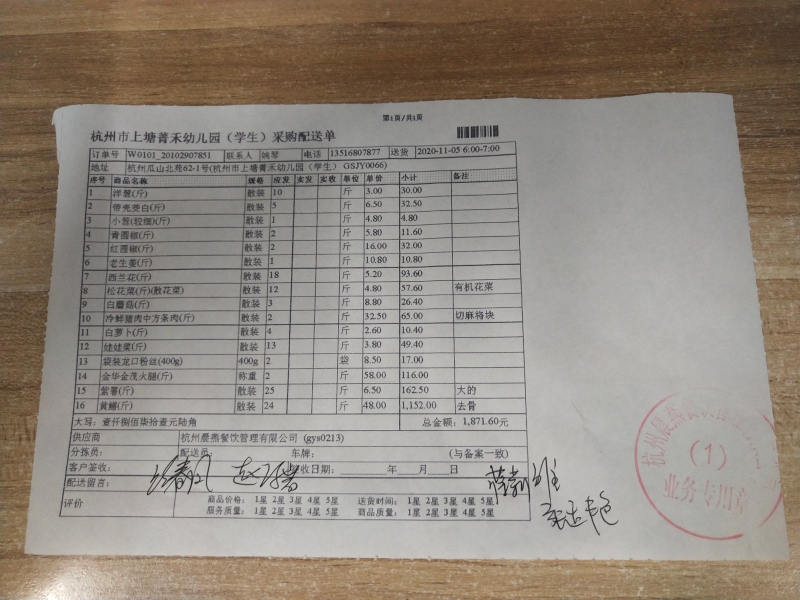 第1页/共1页
杭州市上塘菁禾幼儿园（学生）采购配送单
订单号 W0101_20102907851 联系人 姚琴 电话 13516807877 送货 2020-11-05 6:00-7:00
地址 杭州瓜山北苑62-1号(杭州市上塘菁禾幼儿园（学生）GSJY0066)
序号 商品名称 规格 应发 实发 实收 单位 单价 小计 备注
1 洋葱(斤) 散装 10 斤 3.00 30.00
2 带壳茭白(斤) 散装 5 斤 6.50 32.50
3 小葱(较细)(斤) 散装 1 斤 4.80 4.80
4 青圆椒(斤) 散装 2 斤 5.80 11.60
5 红圆椒(斤) 散装 2 斤 16.00 32.00
6 老生姜(斤) 散装 1 斤 10.80 10.80
7 西兰花(斤) 散装 18 斤 5.20 93.60
8 松花菜(斤)(散花菜) 散装 12 斤 4.80 57.60 有机花菜
9 白蘑菇(斤) 散装 3 斤 8.80 26.40
10 冷鲜猪肉中方条肉(斤) 散装 2 斤 32.50 65.00 切麻将块
11 白萝卜(斤) 散装 4 斤 2.60 10.40
12 娃娃菜(斤) 散装 13 斤 3.80 49.40
13 袋装龙口粉丝(400g) 400g 2 袋 8.50 17.00
14 金华金茂火腿(斤) 称重 2 斤 58.00 116.00
15 紫薯(斤) 散装 25 斤 6.50 162.50 大的
16 黄鳝(斤) 散装 24 斤 48.00 1,152.00 去骨
大写：壹仟捌佰柒拾壹元陆角 总金额：1,871.60元
供应商 杭州晨燕餐饮管理有限公司 (gys0213)
分拣员： 配送员： 车牌： (与备案一致)
客户签收： 收日期： 年 月 日
配送留言：
评价 商品价格： 1星 2星 3星 4星 5星 送货时间： 1星 2星 3星 4星 5星
服务质量： 1星 2星 3星 4星 5星 商品质量： 1星 2星 3星 4星 5星
杭州晨燕餐饮管理
(1)
业务专用章